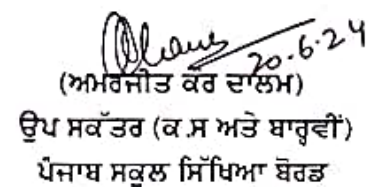 20.6.24
(ਅਮਰਜੀਤ ਕੌਰ ਦਾਲਮ)
ਉਪ ਸਕੱਤਰ (ਕ.ਸ ਅਤੇ ਬਾਰ੍ਹਵੀਂ)
ਪੰਜਾਬ ਸਕੂਲ ਸਿੱਖਿਆ ਬੋਰਡ